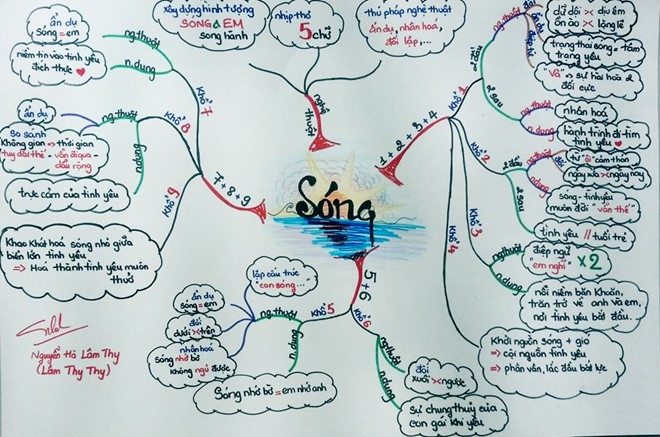 Sóng
nghệ thuật
xây dựng hình tượng
SÓNG & EM
song hành
nhịp thơ
5 chữ
thủ pháp nghệ thuật
ẩn dụ, nhân hoá,
đối lập,...
1+2+3+4
Khổ 1
2 câu đầu
ng.thuật
đối
dữ dội >< dịu êm
ồn ào >< lặng lẽ
ẩn dụ
trạng thái sóng = tâm
trạng yêu
"Và" => sự hài hoà 2
đối cực
2 sau
ng.thuật
nhân hoá
n.dung
hành trình đi tìm
tình yêu
Khổ 2
2 đầu
ng.thuật
"ôi" cảm thán
ngày xưa >< ngày nay
n.dung
sóng - tình yêu
muôn đời "vẫn thế"
2 sau
tình yêu // tuổi trẻ
Khổ 3
ng.thuật
điệp ngữ
"em nghĩ" x2
n.dung
nỗi niềm băn khoăn,
trăn trở về anh và em,
nơi tình yêu bắt đầu...
Khổ 4
Khởi nguồn sóng + gió
=> cội nguồn tình yêu
=> phân vân, lắc đầu bất lực
5+6
Khổ 5
ng.thuật
lặp cấu trúc
"con sóng..."
ẩn dụ
sóng = em
đối
dưới >< trên
nhân hoá
Sóng nhớ bờ
không ngủ được
n.dung
Sóng nhớ bờ = em nhớ anh
Khổ 6
ng.thuật
đối
xuôi >< ngược
n.dung
sự chung thuỷ của
con gái khi yêu
7+8+9
Khổ 7
ng.thuật
ẩn dụ
sóng = em
n.dung
niềm tin vào tình yêu
đích thực
Khổ 8
ng.thuật
ẩn dụ
So sánh
không gian => thời gian
"tuy dài thế" - vẫn đi qua -
dẫu rộng
n.dung
trực cảm của tình yêu
Khổ 9
Khao khát hoá sóng nhỏ giữa
biển lớn tình yêu
=> Hoá thành tình yêu muôn
thuở
Nguyễn Hà Lâm Thy
(Lâm Thy Thy)